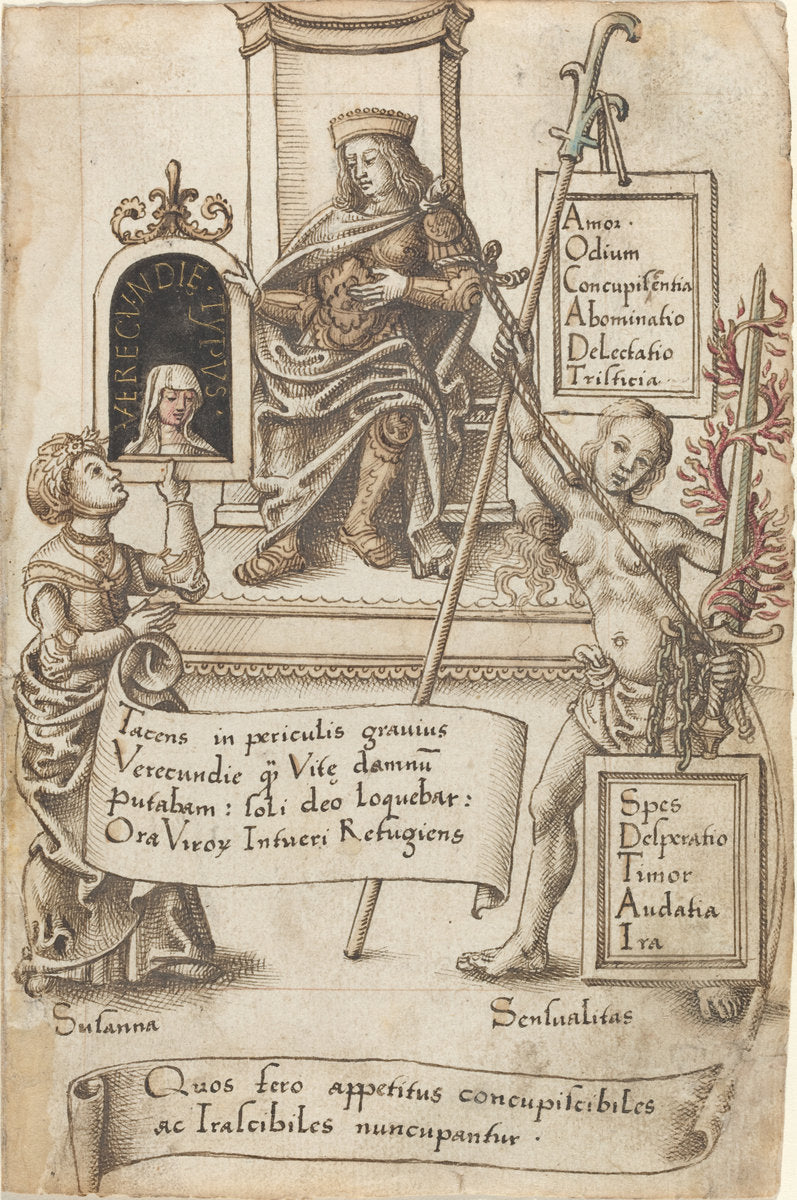 VERECUNDIĘ · TYPVS ·
Amor ·
Odium
Concupiſẽntia
Abominatio
Delectatio
Triſticia ·
Tacens in periculis gravius
Verecundie qȝ Vitę damnū
Putabam : ſoli deo loquebar :
Ora Viroꝝ Intueri Refugiens
Spes
Deſperatio
Timor
Audatia
Ira
Suſanna
Senſualitas
Quos fero appetitus concupiſcibiles
ac Iraſcibiles nuncupantur ·